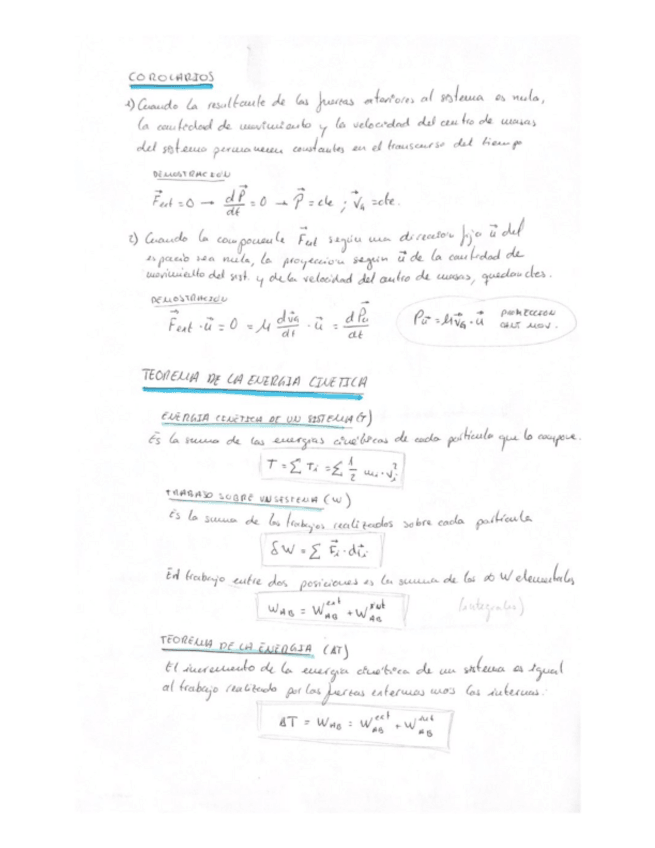 COROLARIOS
1) Cuando la resultante de las fuerzas exteriores al sistema es nula,
la cantidad de movimiento y la velocidad del centro de masas
del sistema permanecen constantes en el transcurso del tiempo
DEMOSTRACION
F⃗ext = 0 → dP⃗/dt = 0 → P⃗ = cte ; V⃗G = cte.
2) Cuando la componente F⃗ext según una direccion fija u⃗ del
espacio sea nula, la proyeccion según u⃗ de la cantidad de
movimiento del sist. y de la velocidad del centro de masas, quedan ctes.
DEMOSTRACION
F⃗ext · u⃗ = 0 = M dv⃗G/dt · u⃗ = dP⃗u/dt
Pu⃗ = M v⃗G · u⃗ PROYECCION
CANT MOV.
TEOREMA DE LA ENERGIA CINETICA
ENERGIA CINETICA DE UN SISTEMA (T)
Es la suma de las energias cinéticas de cada particula que lo compone.
T = Σ Ti = Σ 1/2 mi · vi²
TRABAJO SOBRE UN SISTEMA (W)
Es la suma de los trabajos realizados sobre cada particula
δW = Σ F⃗i · dr⃗i
El trabajo entre dos posiciones es la suma de los ∞ W elementales
WAB = WAB^ext + WAB^int (integrales)
TEOREMA DE LA ENERGIA (ΔT)
El incremento de la energia cinética de un sistema es igual
al trabajo realizado por las fuerzas externas mas las internas:
ΔT = WAB = WAB^ext + WAB^int